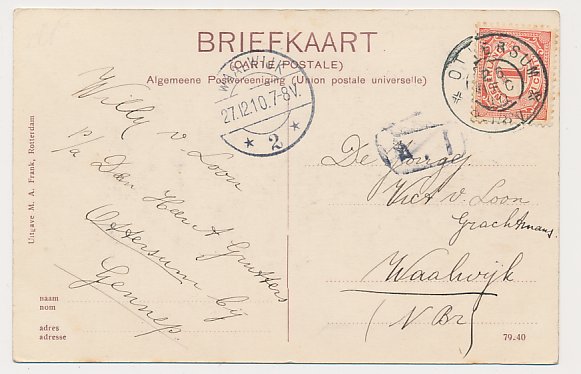 BRIEFKAART
CARTE (POSTALE)
Algemeene Postvereeniging (Union postale universelle)
WAALWIJK
27.12.10.7-8V.
* 2 *
OTTERSUM
Willy v. Loon
p/a Den Heer A Grutters
Ottersum bij
Gennep.
De Jonge
Vict v. Loon
Grachtmans.
Waalwijk
(N Br)
naam
nom
adres
adresse
79-40
Uitgave M. A. Frank, Rotterdam